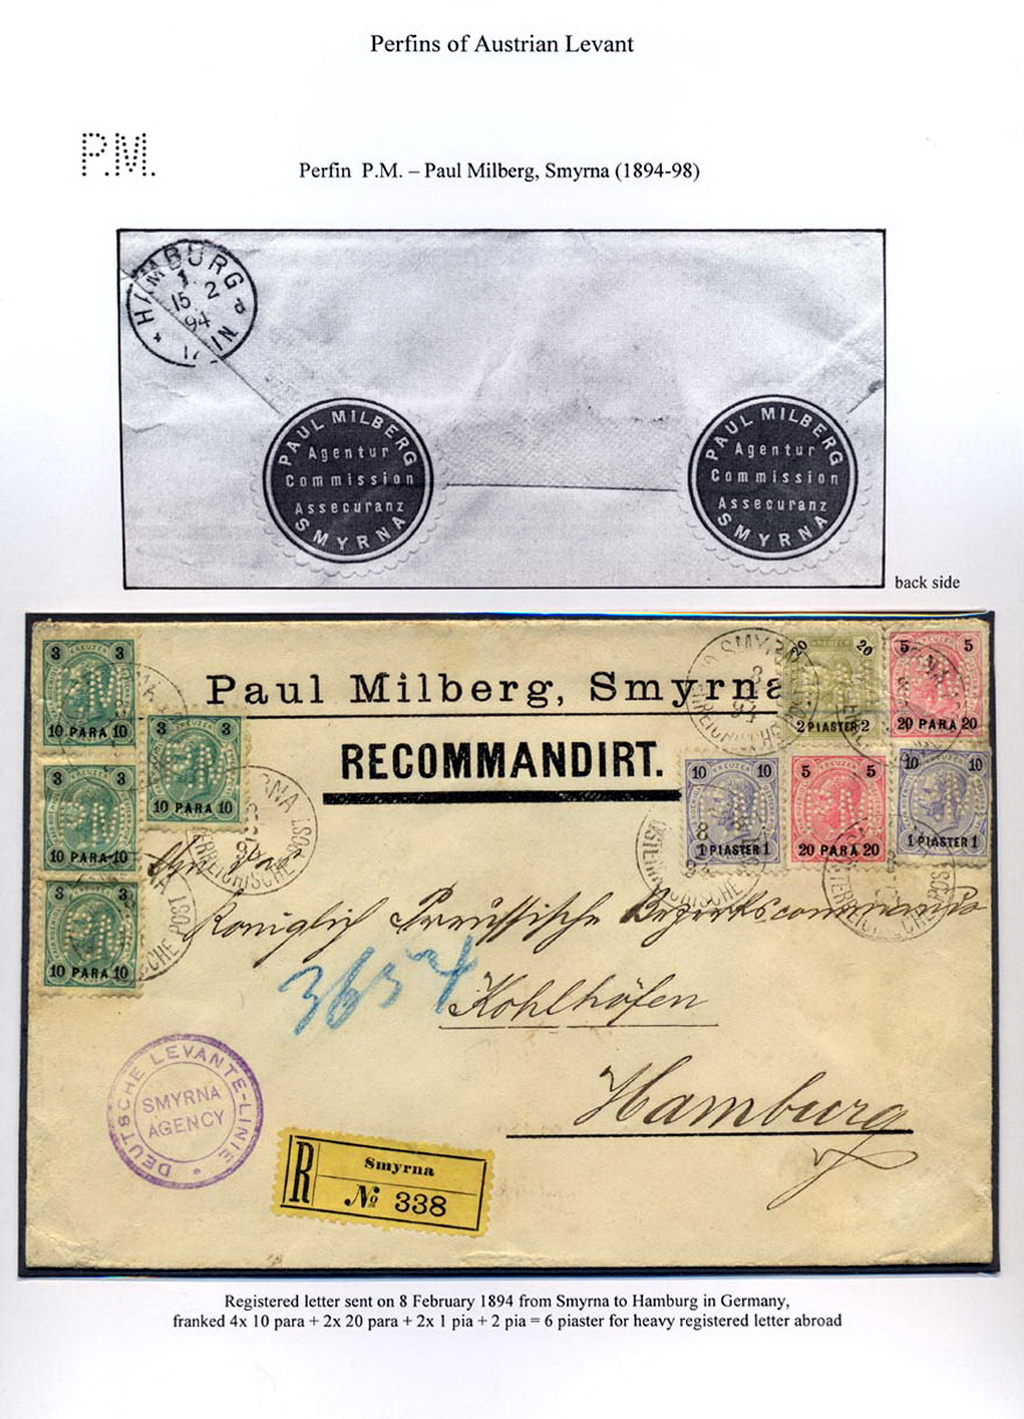 Perfins of Austrian Levant
P.M.
Perfin P.M. – Paul Milberg, Smyrna (1894-98)
* HAMBURG
1.
15 2
94
PAUL MILBERG
Agentur
Commission
Assecuranz
SMYRNA
PAUL MILBERG
Agentur
Commission
Assecuranz
SMYRNA
back side
3 KREUZER 3
10 PARA 10
3 KREUZER 3
10 PARA 10
3 KREUZER 3
10 PARA 10
3 KREUZER 3
10 PARA 10
20 KREUZER 20
2 PIASTER 2
5 KREUZER 5
20 PARA 20
10 KREUZER 10
1 PIASTER 1
5 KREUZER 5
20 PARA 20
10 KREUZER 10
1 PIASTER 1
Paul Milberg, Smyrna
RECOMMANDIRT.
Königlich Preussische Bezirkscommando
3654
Kohlhöfen
Hamburg
DEUTSCHE LEVANTE-LINIE *
SMYRNA
AGENCY
R
Smyrna
№ 338
Registered letter sent on 8 February 1894 from Smyrna to Hamburg in Germany,
franked 4x 10 para + 2x 20 para + 2x 1 pia + 2 pia = 6 piaster for heavy registered letter abroad